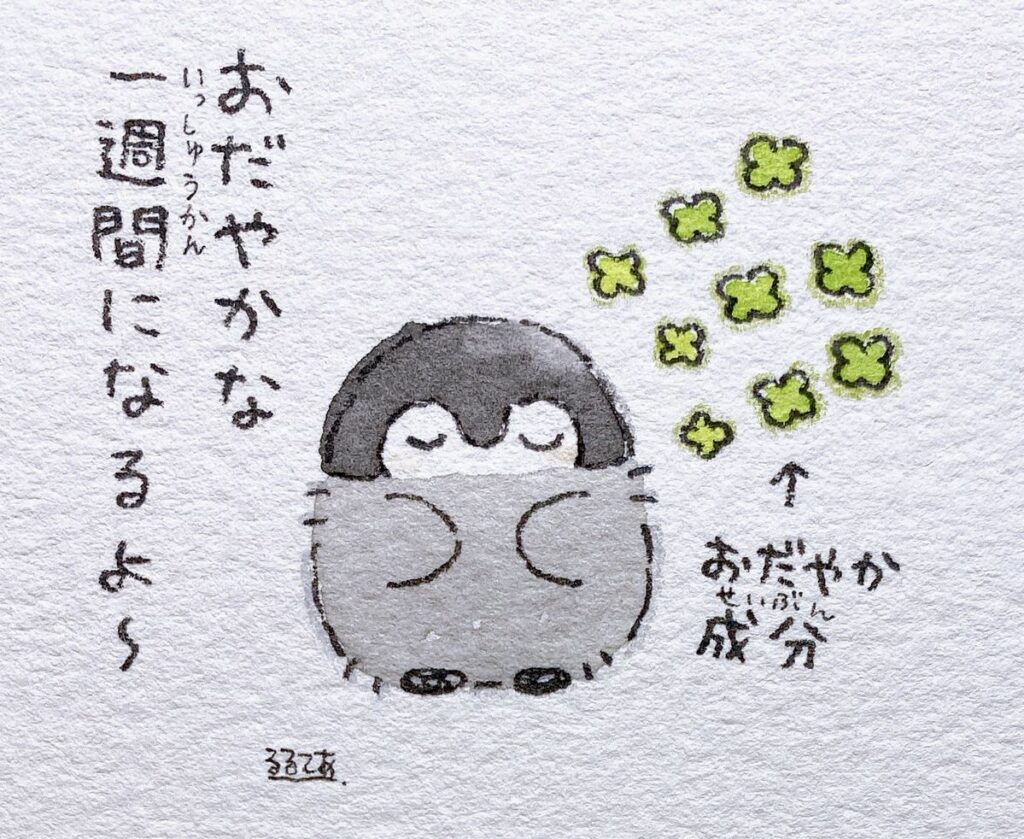 おだやかな
いっしゅうかん
一週間になるよ〜
おだやか
せいぶん
成分
るるてあ